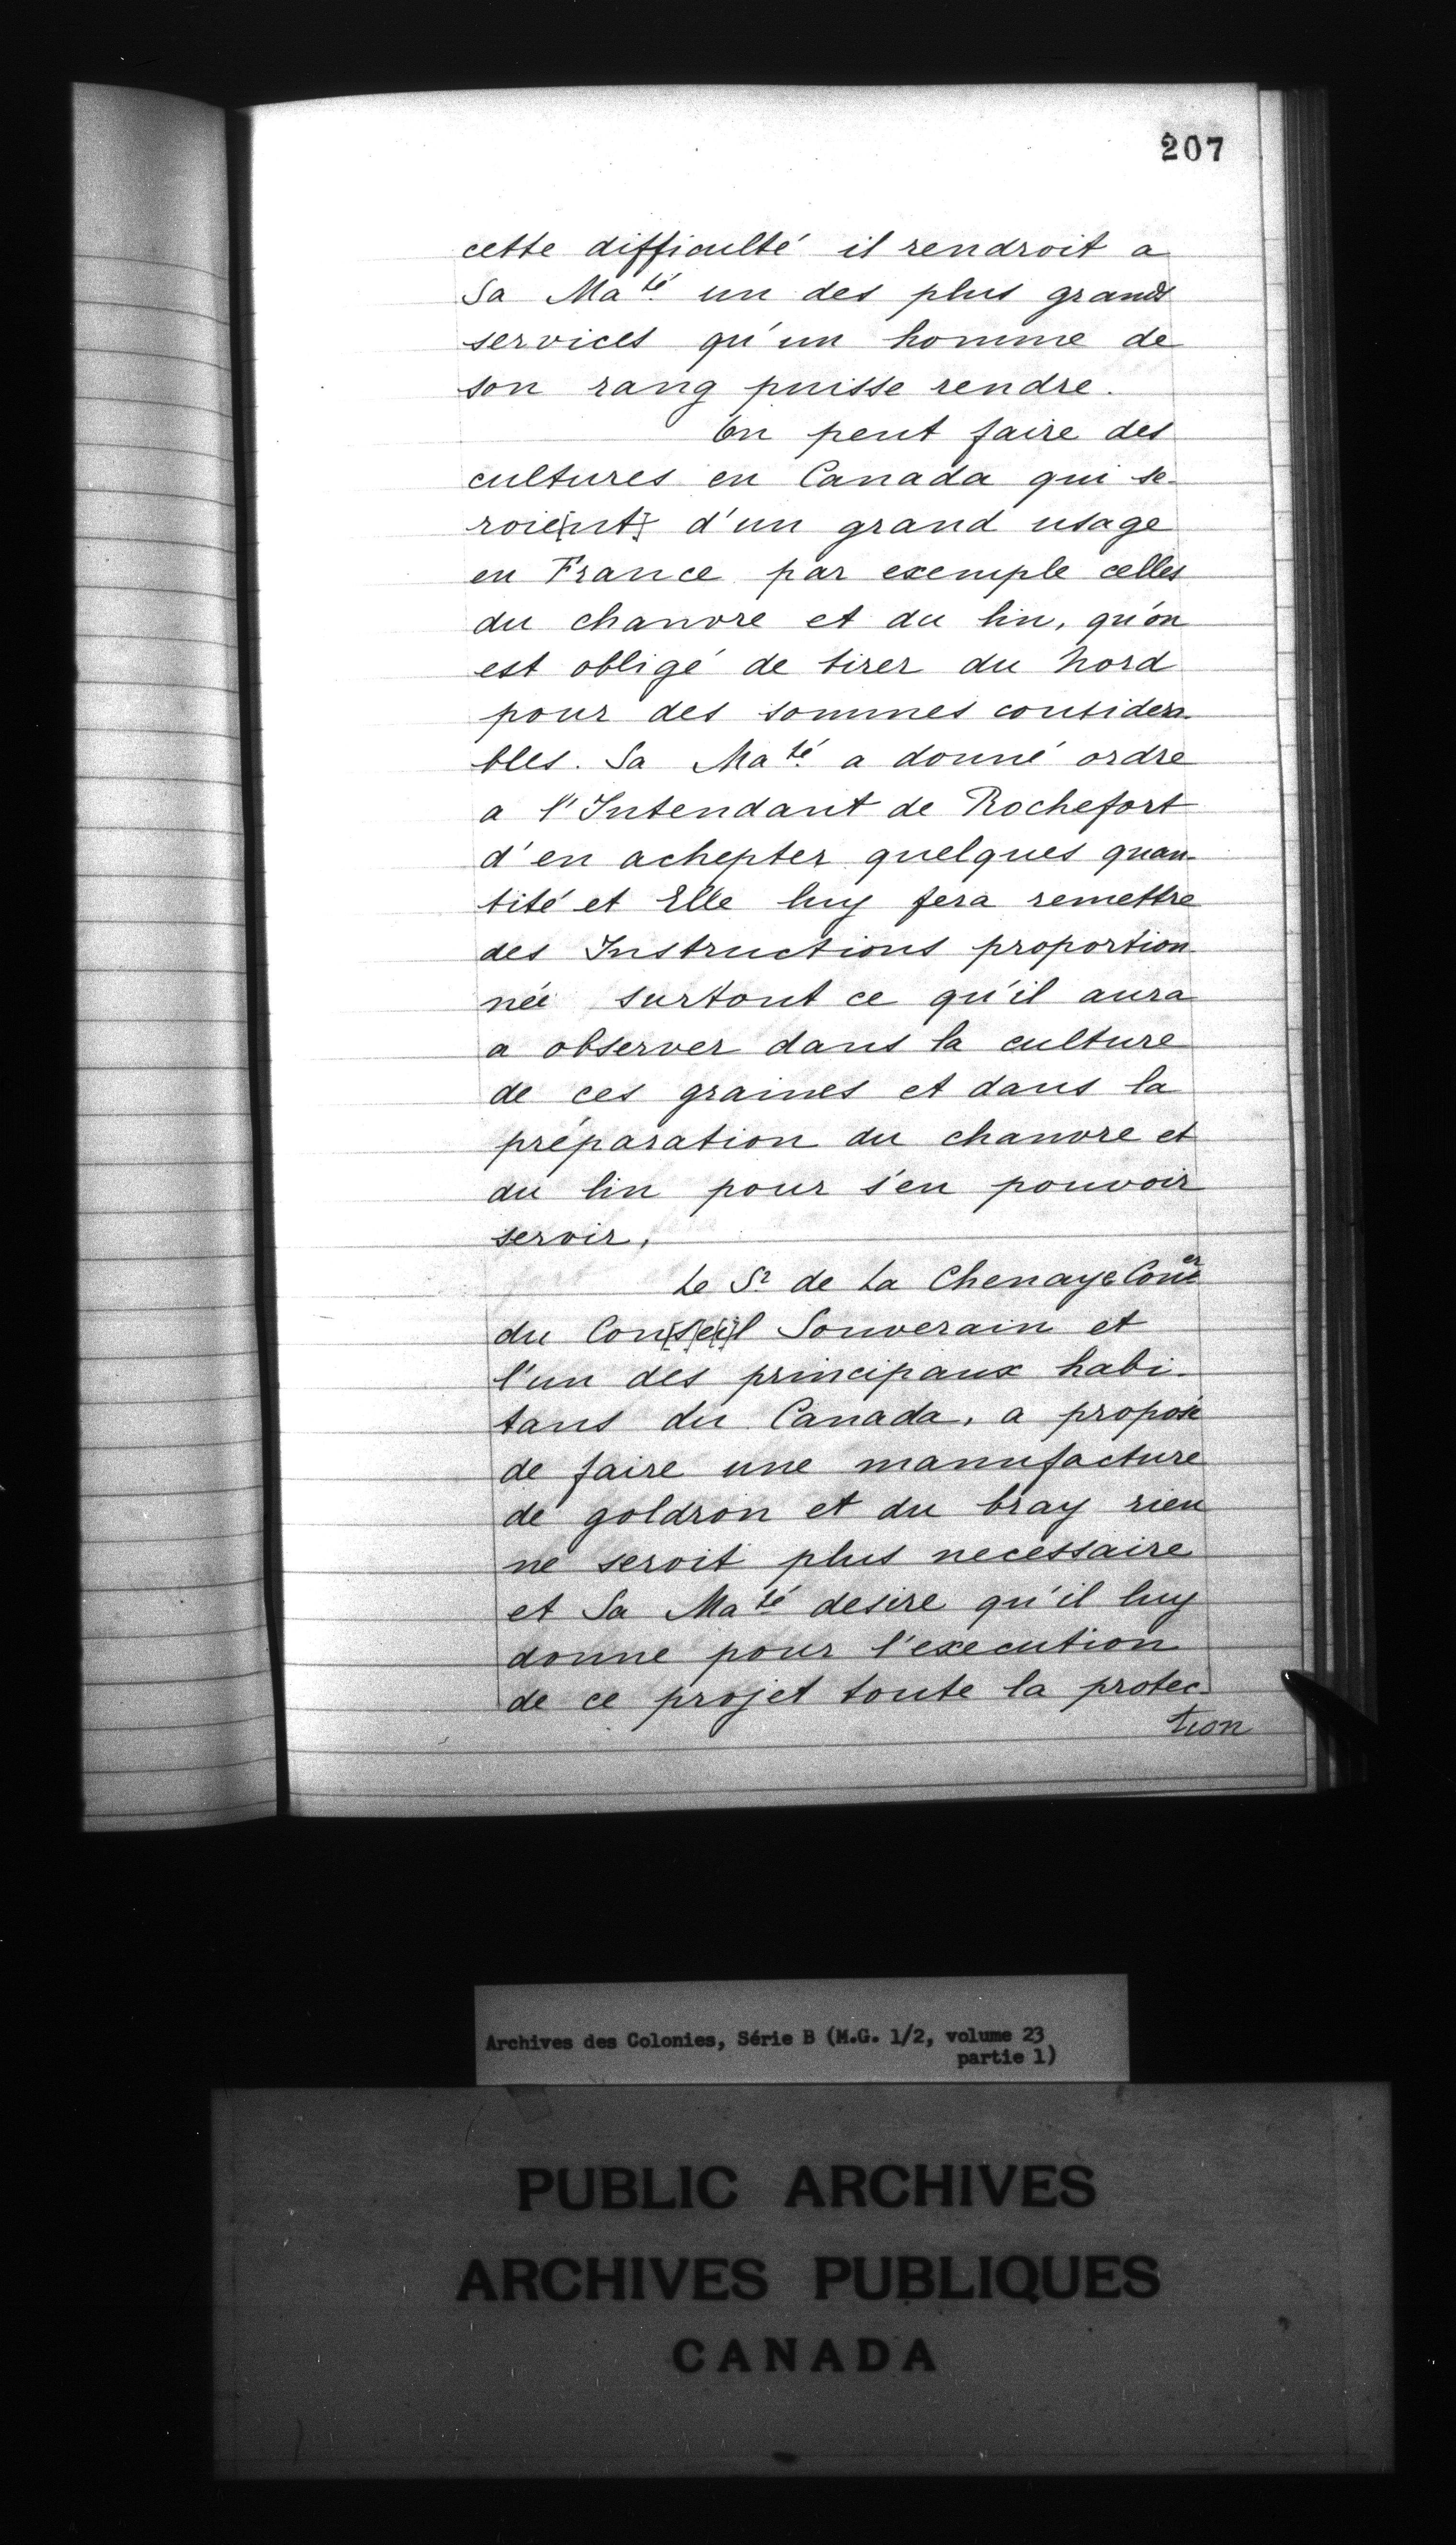 207
cette difficulté il rendroit a
Sa Maté un des plus grands
services qu'un homme de
son rang puisse rendre.
On peut faire des
cultures en Canada qui se-
roie[nt] d'un grand usage
en France par exemple celles
du chanvre et du lin, qu'on
est obligé de tirer du Nord
pour des sommes considera-
bles. Sa Maté a donné ordre
a l'Intendant de Rochefort
d'en achepter quelques quan-
tité et Elle luy fera remettre
des Instructions proportion
née surtout ce qu'il aura
a observer dans la culture
de ces graines et dans la
préparation du chanvre et
du lin pour s'en pouvoir
servir,
Le Sr de La Chenaye Coner
du Con[s]e[i]l Souverain et
l'un des principaux habi-
tans du Canada, a proposé
de faire une manufacture
de goldron et du bray rien
ne seroit plus necessaire
et Sa Maté desire qu'il luy
donne pour l'execution
de ce projet toute la protec
tion
Archives des Colonies, Série B (M.G. 1/2, volume 23
partie 1)
PUBLIC ARCHIVES
ARCHIVES PUBLIQUES
CANADA